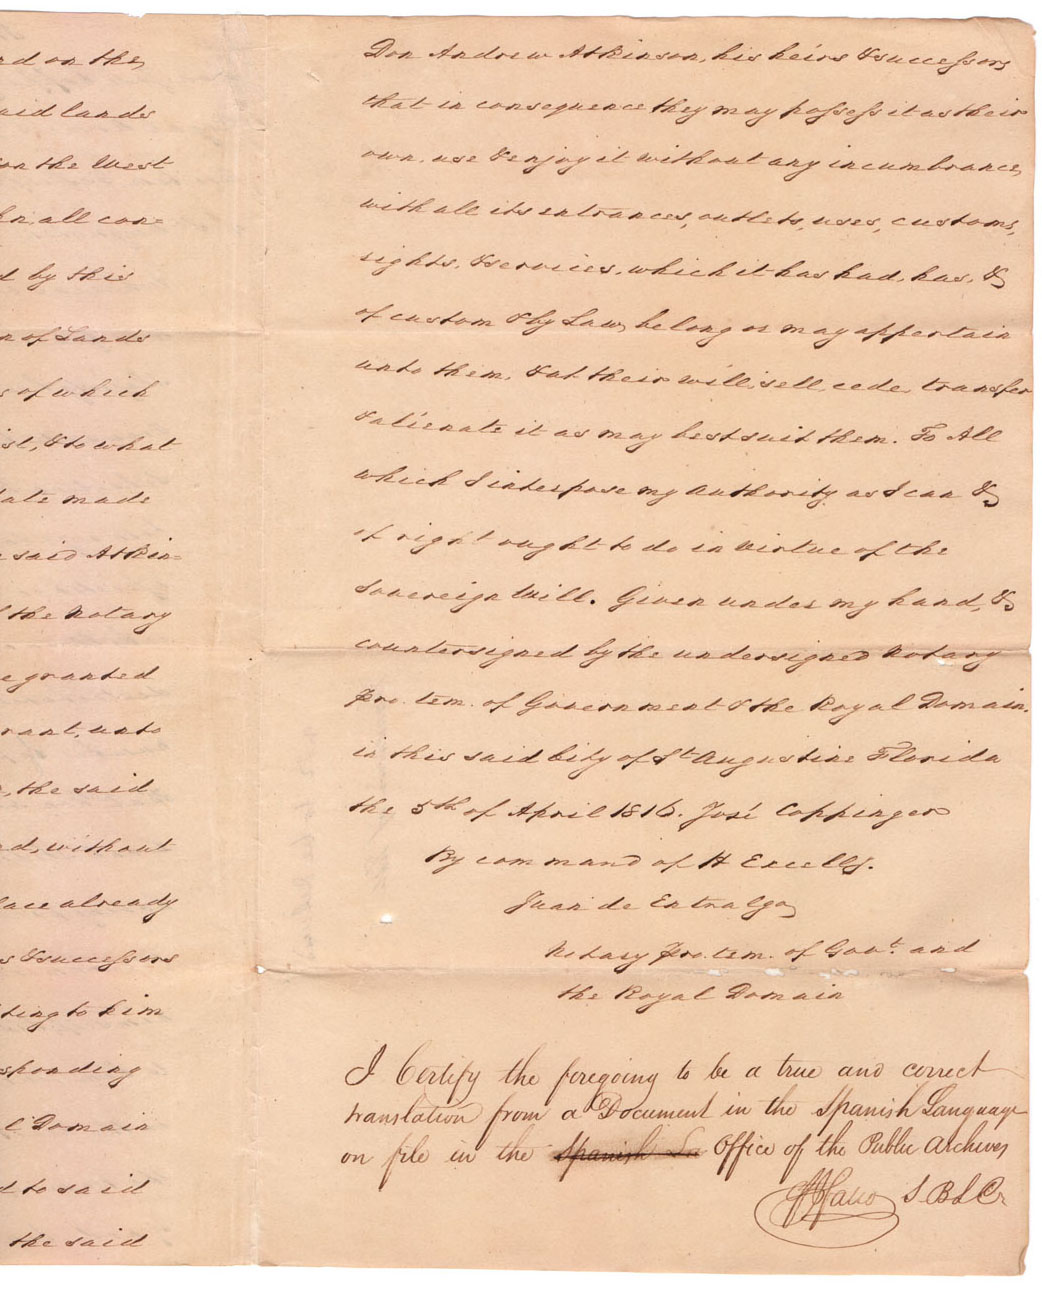 nd on the
aid lands
on the West
in all con=
d by this
n of Lands
s of which
ist, & to what
late made
said Atkin=
the Notary
e granted
rant, unto
, the said
d, without
lace already
s & successors
ting to him
sponding
l Domain
d to said
the said
Don Andrew Atkinson, his heirs & successors
that in consequence they may possess it as their
own, use & enjoy it without any incumbrance,
with all its entrances, outlets, uses, customs,
rights, & services, which it has had, has, &
of custom & by Law, belong or may appertain
unto them, & at their will, sell, cede, transfer
& alienate it as may best suit them. To All
which I interpose my Authority as I can &
of right ought to do in Virtue of the
Sovereign Will. Given under my hand, &
countersigned by the undersigned Notary
Pro. tem. of Government & the Royal Domain,
in this said City of St Augustine Florida
the 5th of April 1816. José Coppinger
By command of H Excelly.
Juan de Entralgo,
Notary Pro. tem. of Govt. and
the Royal Domain
I Certify the foregoing to be a true and correct
translation from a Document in the Spanish Language
on file in the Spanish La Office of the Public Archives
S B L C